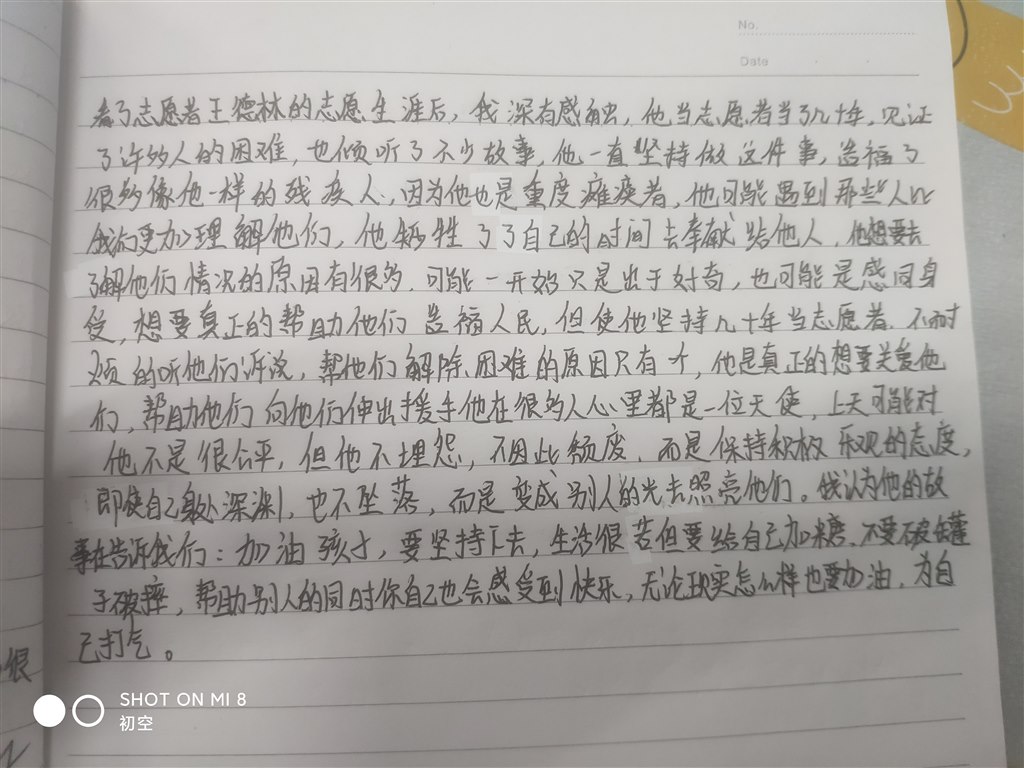 No.
Date
看了志愿者王德林的志愿生涯后，我深有感触，他当志愿者当了几十年，见证
了许多人的困难，也倾听了不少故事，他一直坚持做这件事，造福了
很多像他一样的残疾人，因为他也是重度瘫痪者，他可能遇到那些人比
我们更加理解他们，他牺牲了了自己的时间去奉献给他人，他想要去
了解他们情况的原因有很多，可能一开始只是出于好奇，也可能是感同身
受，想要真正的帮助他们造福人民，但使他坚持几十年当志愿者，不耐
烦的听他们诉说，帮他们解除困难的原因只有一个，他是真正的想要关爱他
们，帮助他们向他们伸出援手他在很多人心里都是一位天使，上天可能对
他不是很公平，但他不埋怨，不因此颓废，而是保持积极乐观的态度，
即使自己身处深渊，也不坠落，而是变成别人的光去照亮他们。我认为他的故
事在告诉我们：加油孩子，要坚持下去，生活很苦但要给自己加糖，不要破罐
子破摔，帮助别人的同时你自己也会感受到快乐，无论现实怎么样也要加油，为自
己打气。
很
SHOT ON MI 8
初空